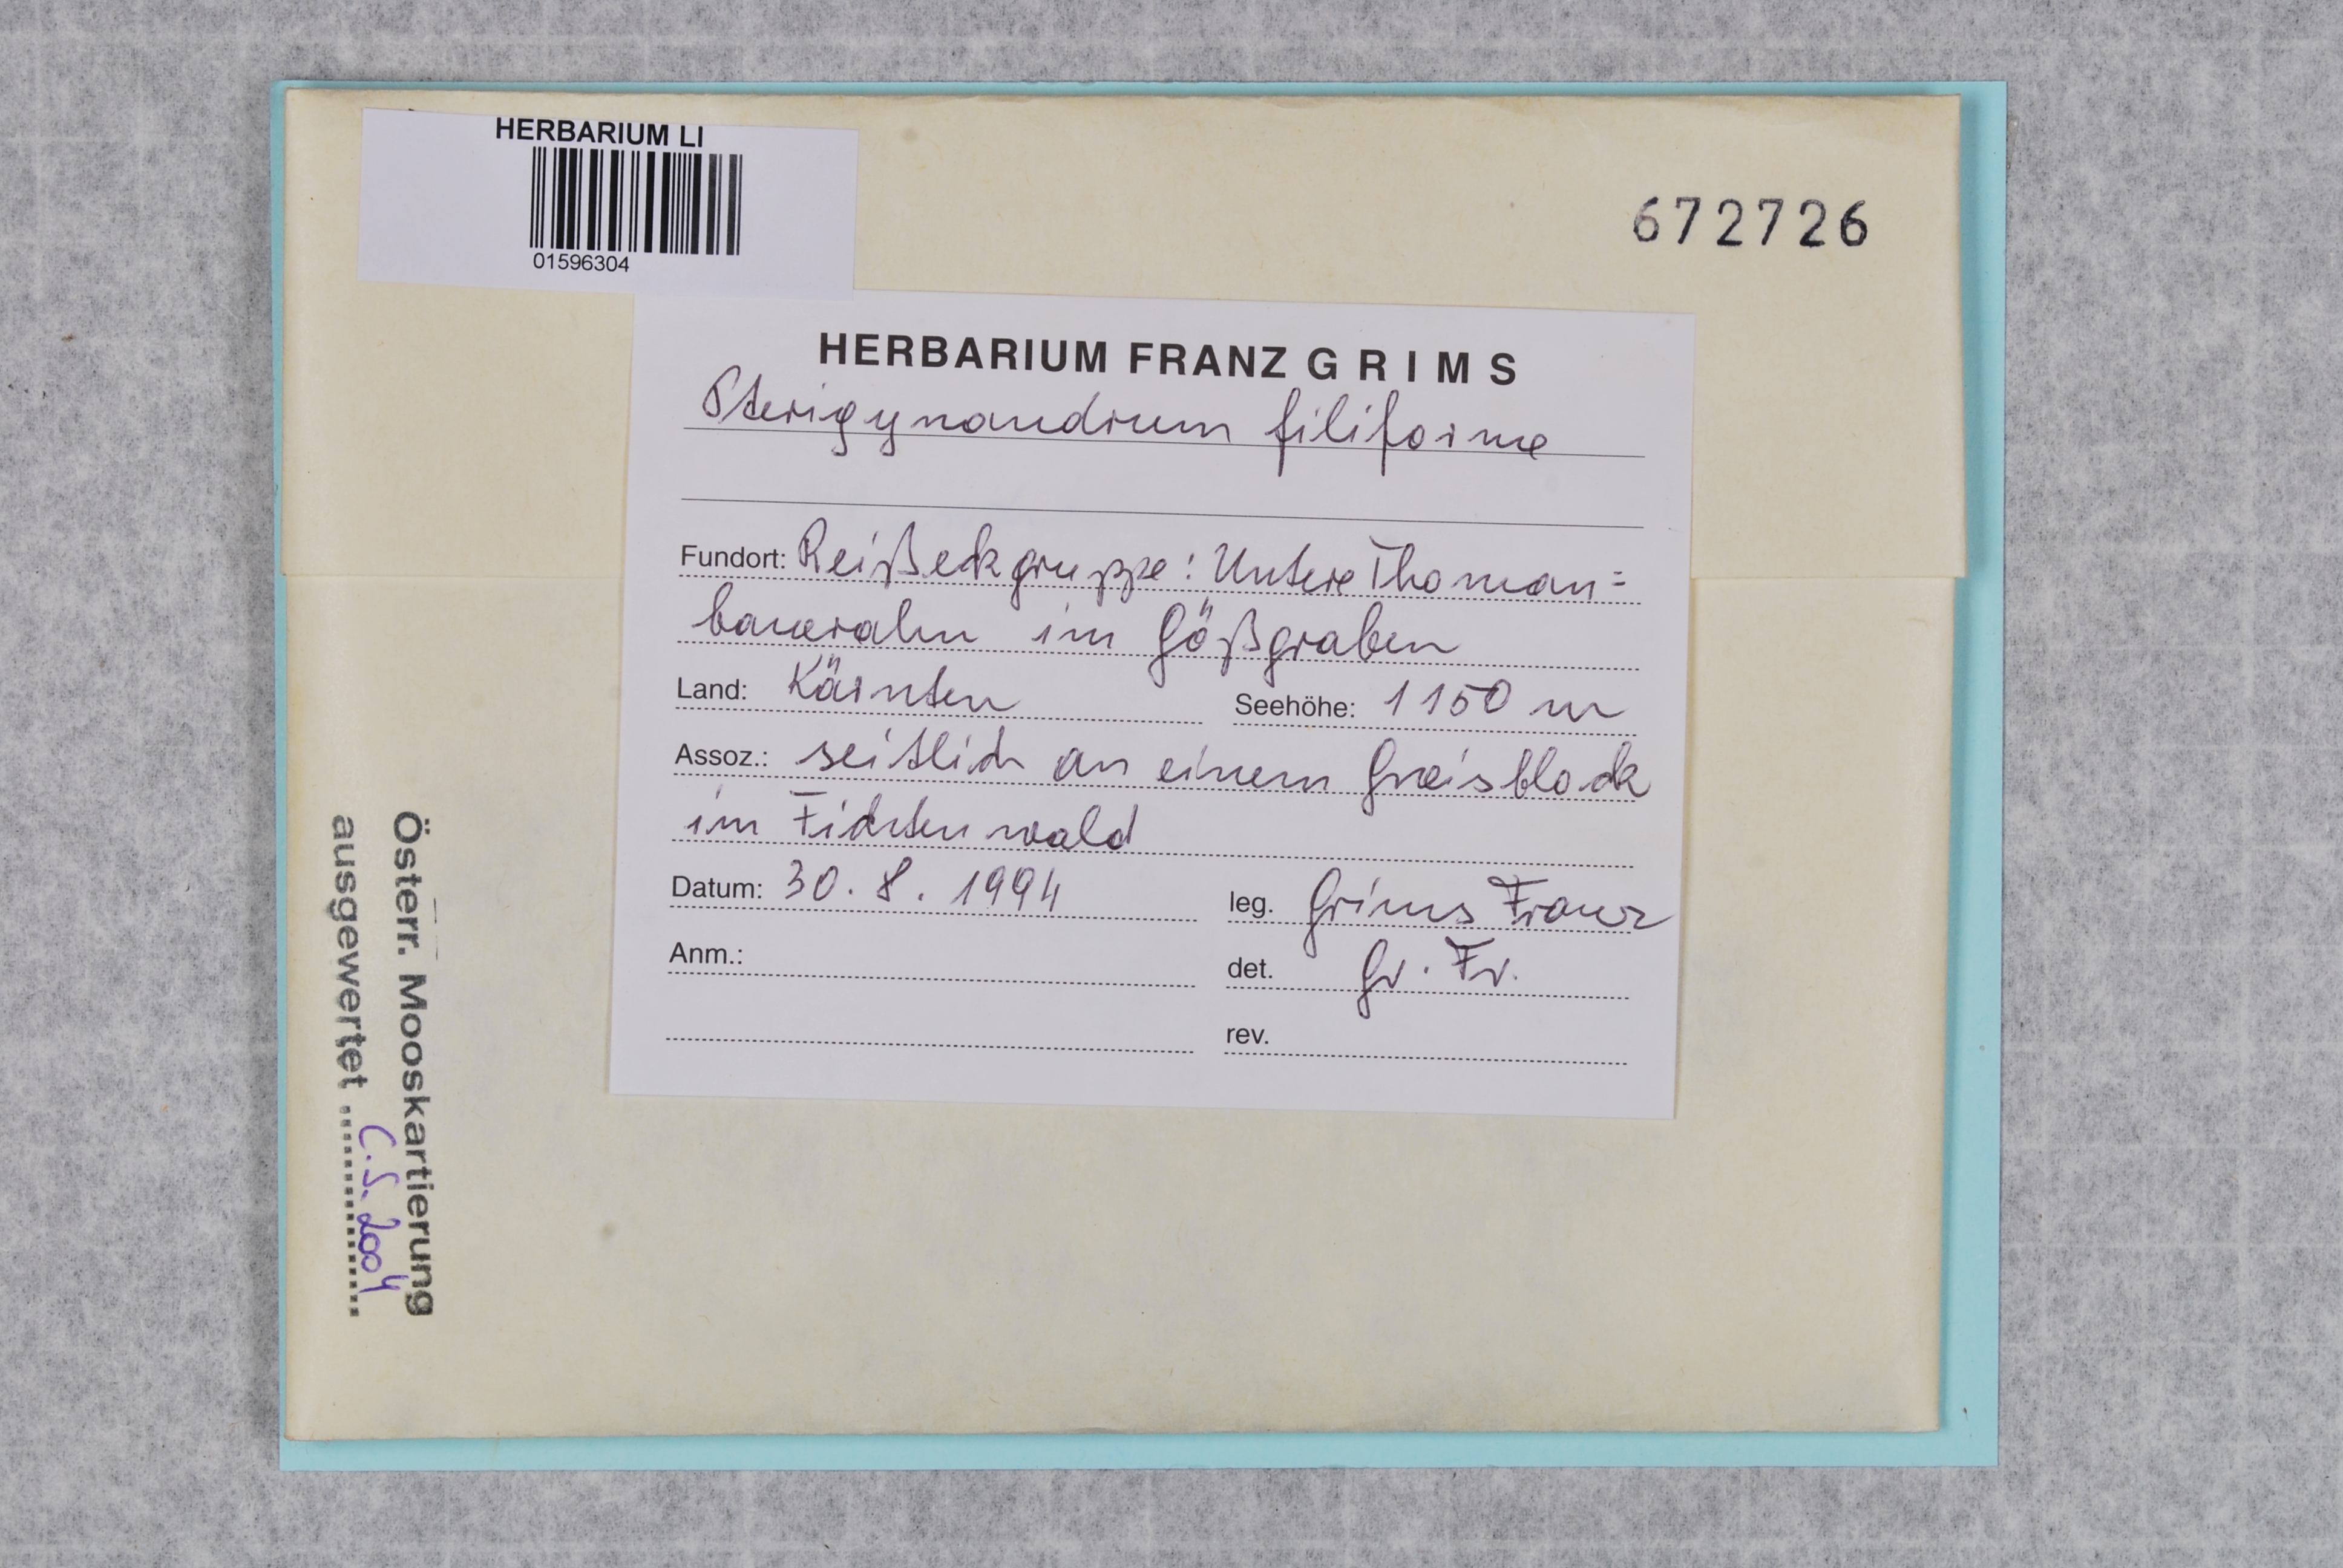 HERBARIUM LI
01596304
672726
HERBARIUM FRANZ GRIMS
Pterigynandrum filiforme
Fundort: Reißeckgruppe: Untere Thoman=
baueralm im Gößgraben
Land: Kärnten Seehöhe: 1150 m
Assoz.: seitlich an einem Gneisblock
im Fichtenwald
Datum: 30. 8. 1994 leg. Grims Franz
Anm.: det. Gr. Fr.
rev.
Österr. Mooskartierung
ausgewertet C.S. 2004